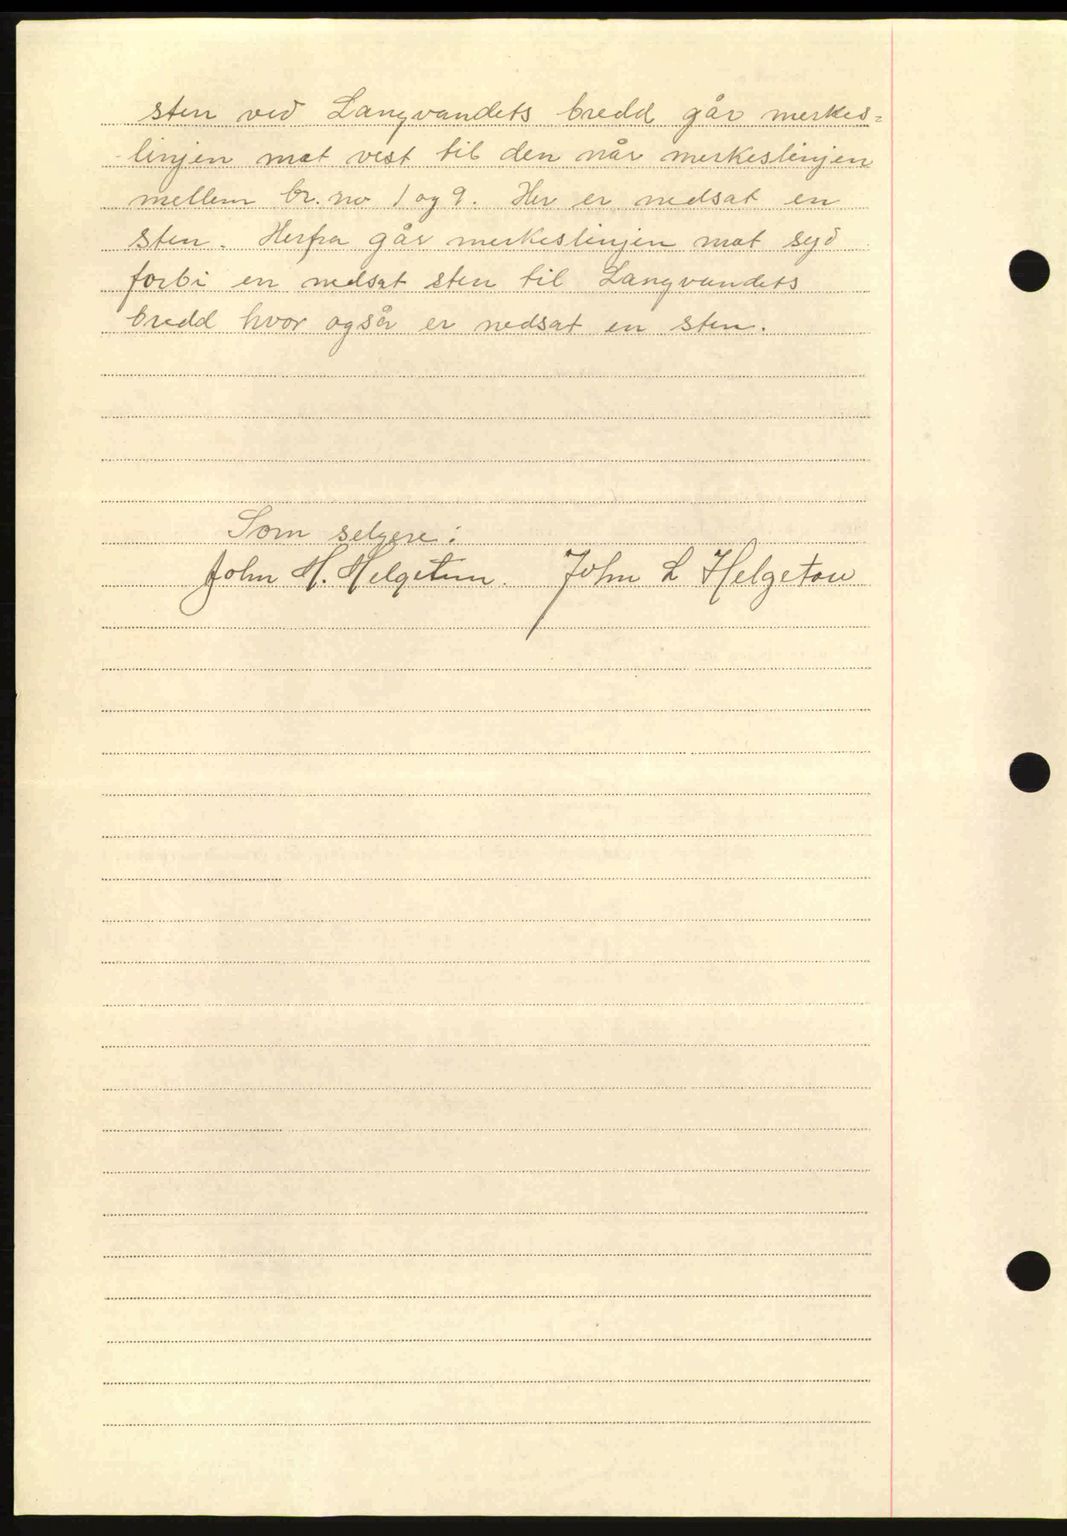 sten ved Langvandets bredd går merkes=
linjen mot vest til den når merkeslinjen
mellem br. no 1 og 9. Her er nedsat en
sten. Herfra går merkeslinjen mot syd
forbi en nedsat sten til Langvandets
bredd hvor også er nedsat en sten.
Som selgere:
John H. Helgetun. John L Helgetou